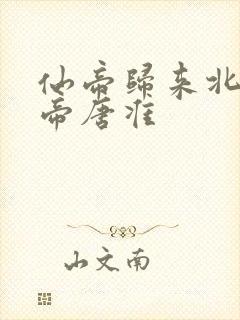 仙帝歸来北
帝唐淮
山文南